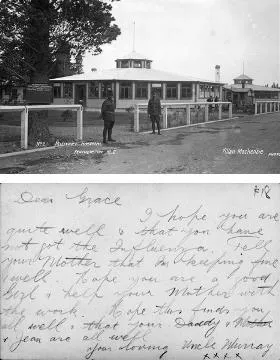 Nº2. Military Hospital
Featherston N.Z.
Allan Mackenzie
Dear Grace
I hope you are
quite well & that you have
not got the Influenza. Tell
your Mother that Im keeping fine
& well. Hope you are a good
Girl & help your Mother with
the work. Hope this finds you
all well & that your Daddy & Mother
& Jean are all well.
Your loving Uncle Murray
x x x x